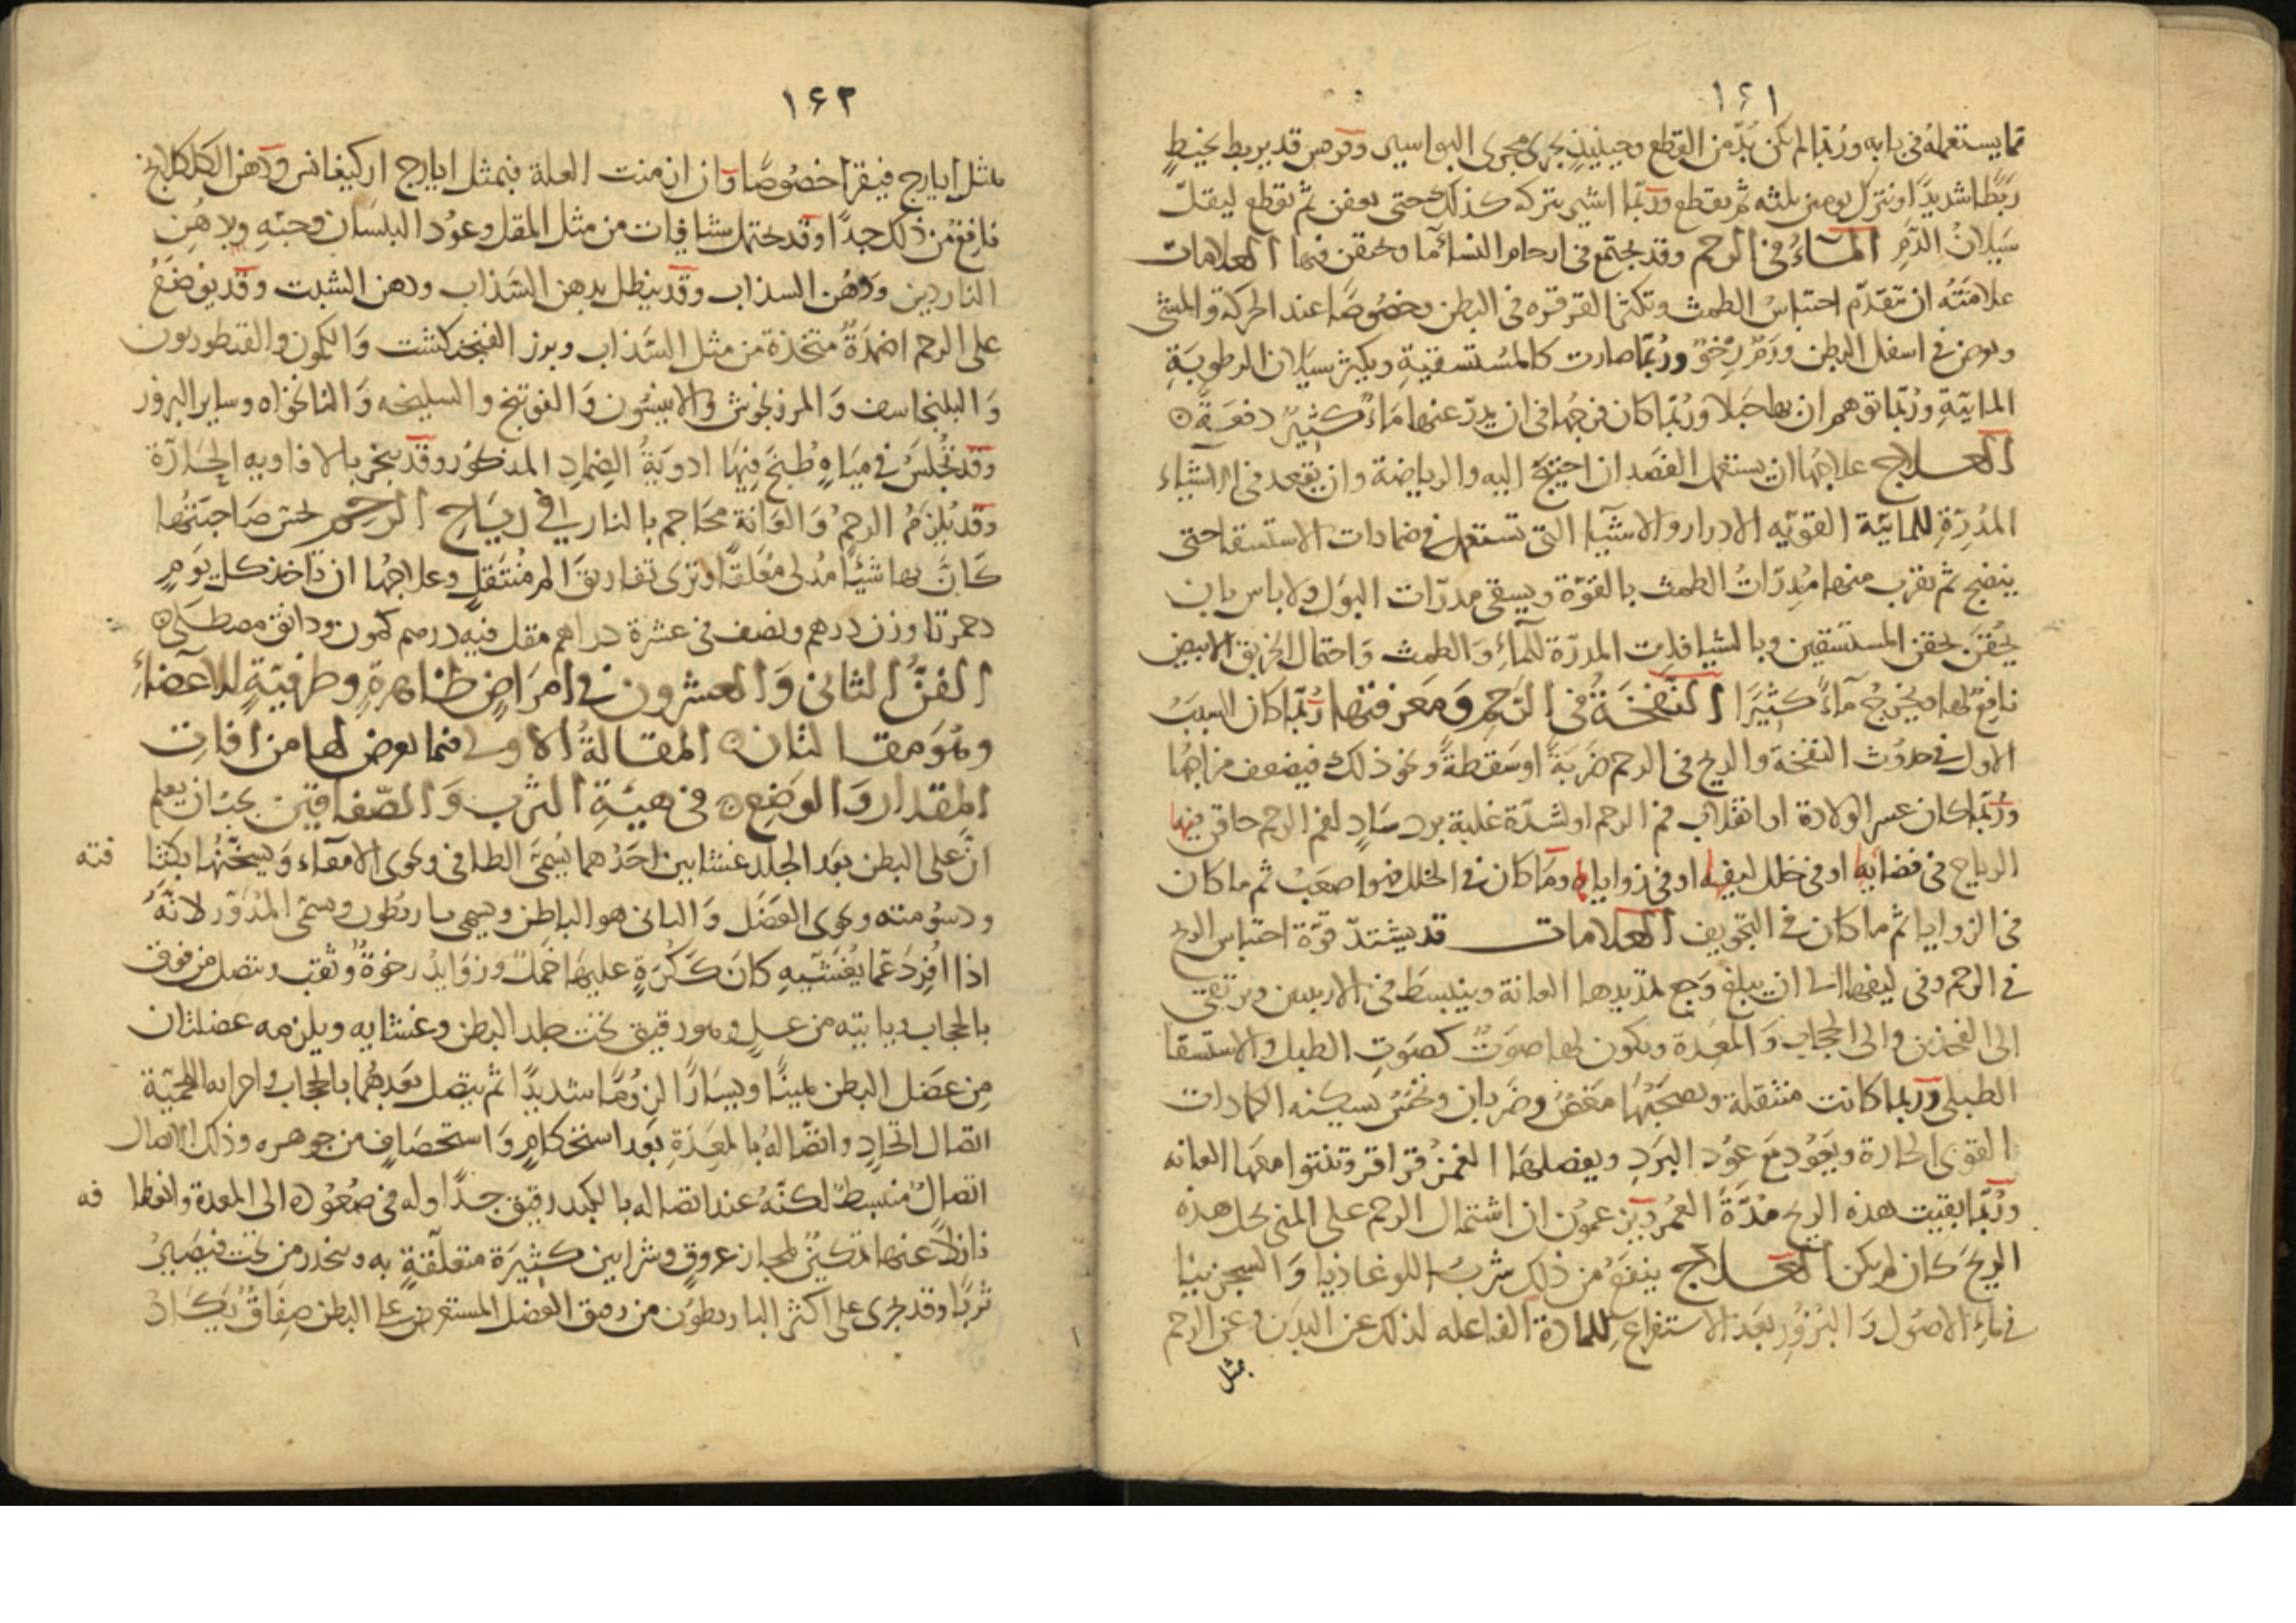 ١٦١
مما يستعمله في بابه وربما لم يكن بد من القطع وحينئذ يجرى مجرى البواسير وقوم قد يربط بخيط
ربطا شديدا ويترك يومين ثلثة ثم يقطع وربما اشير بتركه كذلك حتى يعفن ثم يقطع ليقل
سيلان الدم الماء في الرحم وقد يجتمع في ارحام النساء ماء ويحقن فيها العلامات
علامته ان تقدم احتباس الطمث وتكثر القرقرة في البطن وخصوصا عند الحركة والمشى
ويعرض في اسفل البطن ورم رخو وربما صارت كالمستسقية ويكثر سيلان الرطوبة
المائية وربما توهم ان بها حبلا وربما كان فرجها في ان يدر عنها ماء كثير دفعة
العلاج علاجها ان يستعمل الفصد ان احتيج اليه والرياضة وان يقعد في الاشياء
المدرة للمائية القوية الادرار والاشيا التى تستعمل في ضمادات الاستسقا حتى
ينضج ثم يقرب منها مدرات الطمث بالقوة ويسقى مدرات البول ولا باس بان
يحقن بحقن المستسقين وبالشيافات المدرة للماء والطمث واحتمال الخربق الابيض
نافع لها ويخرج ماء كثيرا النفخة في الرحم ومعرفتها ربما كان السبب
الاول في حدوث النفخة والريح في الرحم ضربة او سقطة ونحو ذلك فيضعف مزاجها
وربما كان عسر الولادة او انقلاب فم الرحم او لشدة غلبة برد ساد لفم الرحم حاقن فيها
الرياح في فضائها او في خلل ليفها او في زواياها وما كان في الخلل فهو اصعب ثم ما كان
في الزوايا ثم ما كان في التجويف العلامات قد يشتد قوة احتباس الريح
في الرحم وفى ليفها الى ان يبلغ وجع تمديدها العانة وينبسط في الاربيين ويرتقى
الى الفخذين والى الحجاب والمعدة ويكون لها صوت كصوت الطبل والاستسقا
الطبلى وربما كانت منتقلة ويصحبها مغص وضربان ونخس يسكنه الكمادات
القوى الحارة ويعود مع عود البرد ويفصلها الغمز قراقر وتنتوا معها العانه
وربما بقيت هذه الريح مدة العمر ويزعمون ان اشتمال الرحم على المنى يحل هذه
الريح كان لم يكن العلاج ينفع من ذلك شرب اللوغاذيا والسجزينيا
في ماء الاصول والبزور بعد الاستفراغ للمادة الفاعله لذلك عن البدن وعن الرحم
بمثل
١٦٢
بمثل ايارج فيقرا خصوصا وان ازمنت العلة فبمثل ايارج اركيغانس ودهن الكلكلانج
نافع من ذلك جدا وقد يحتمل شيافات من مثل المقل وعود البلسان وحبه ولا دهن
الناردين ودهن السذاب وقد ينطل بدهن السذاب ودهن الشبت وقد يوضع
على الرحم اضمدة متخذة من مثل السذاب وبزر الفنجنكشت والكمون والقنطوريون
والبلنجاسف والمرزنجوش والانيسون والفوتنج والسليخه والنانخواه وساير البزور
وقد تجلس في مياه طبخ فيها ادوية الضماد المذكور وقد يبخر بالافاويه الحارة
وقد يلزم الرحم والعانة محاجم بالنار في رياح الرحم تحس صاحبتها
كان بها شيئا مدلى معلقا وترى تفاريق الم منتقل وعلاجها ان تاخذ كل يوم
دحمرتا وزن درهم ونصف في عشرة دراهم مقل فيه درهم كمون ودانق مصطكى
الفن الثانى والعشرون في امراض ظاهرة وطرفية للاعضاء
وهو مقالتان المقالة الاولى فيما يعرض لها من افات
المقدار والوضع في هيئة الثرب والصفاقين يجب ان يعلم
ان على البطن بعد الجلد غشايين احدهما يسمى الطافى ويحوى الامعاء ويسخنها بكثا فته
ودسومته ويحوى العضل والثانى هو الباطن ويسمى باريطون ويسمى المدور لانه
اذا افرد عما يغشيه كان ككرة عليها خمل وزوايد رخوة وثقب ويتصل من فوق
بالحجاب ويباينه من عل وهو رقيق تحت جلد البطن وغشايه ويلزمه عضلتان
من عضل البطن يمينا ويسارا لزوما شديدا ثم يتصل بعدهما بالحجاب واجزايه اللحمية
اتصال اتحاد واتصاله بالمعدة بعد استحكام واستحصاف من جوهره وذلك الاتصال
اتصال منبسط لكنه عند اتصاله بالكبد رقيق جدا وله في صعوده الى المعدة وانعطا فه
نازلا عنها تمكين لمجاز عروق وشرايين كثيرة متعلقة به وينحدر من تحت فيصير
ثربا وقد يجرى على اكثر الباريطون من رقيق العضل المستعرض على البطن صفاق يكاد